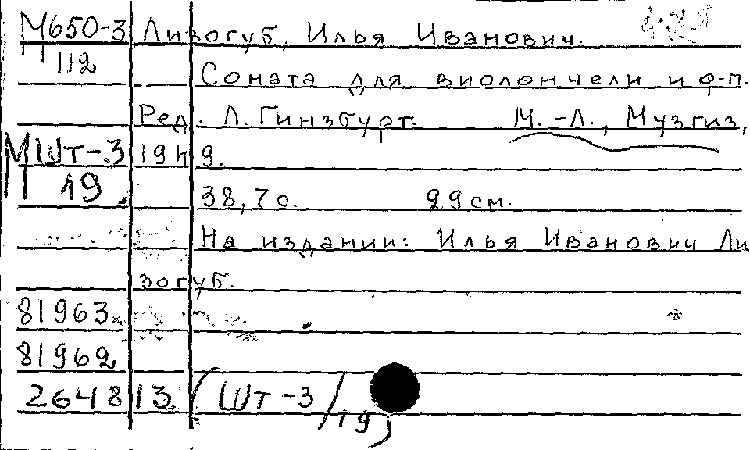 М650-3 Лизогуб, Илья Иванович.
112
Соната для виолончели и ф-п.
Ред. Л. Гинзбург. М.-Л., Музгиз,
МШт-3 1949.
19
38,7 с. 29 см.
На издании: Илья Иванович Ли
зогуб.
81963
81962
264813 (Шт-3/19)